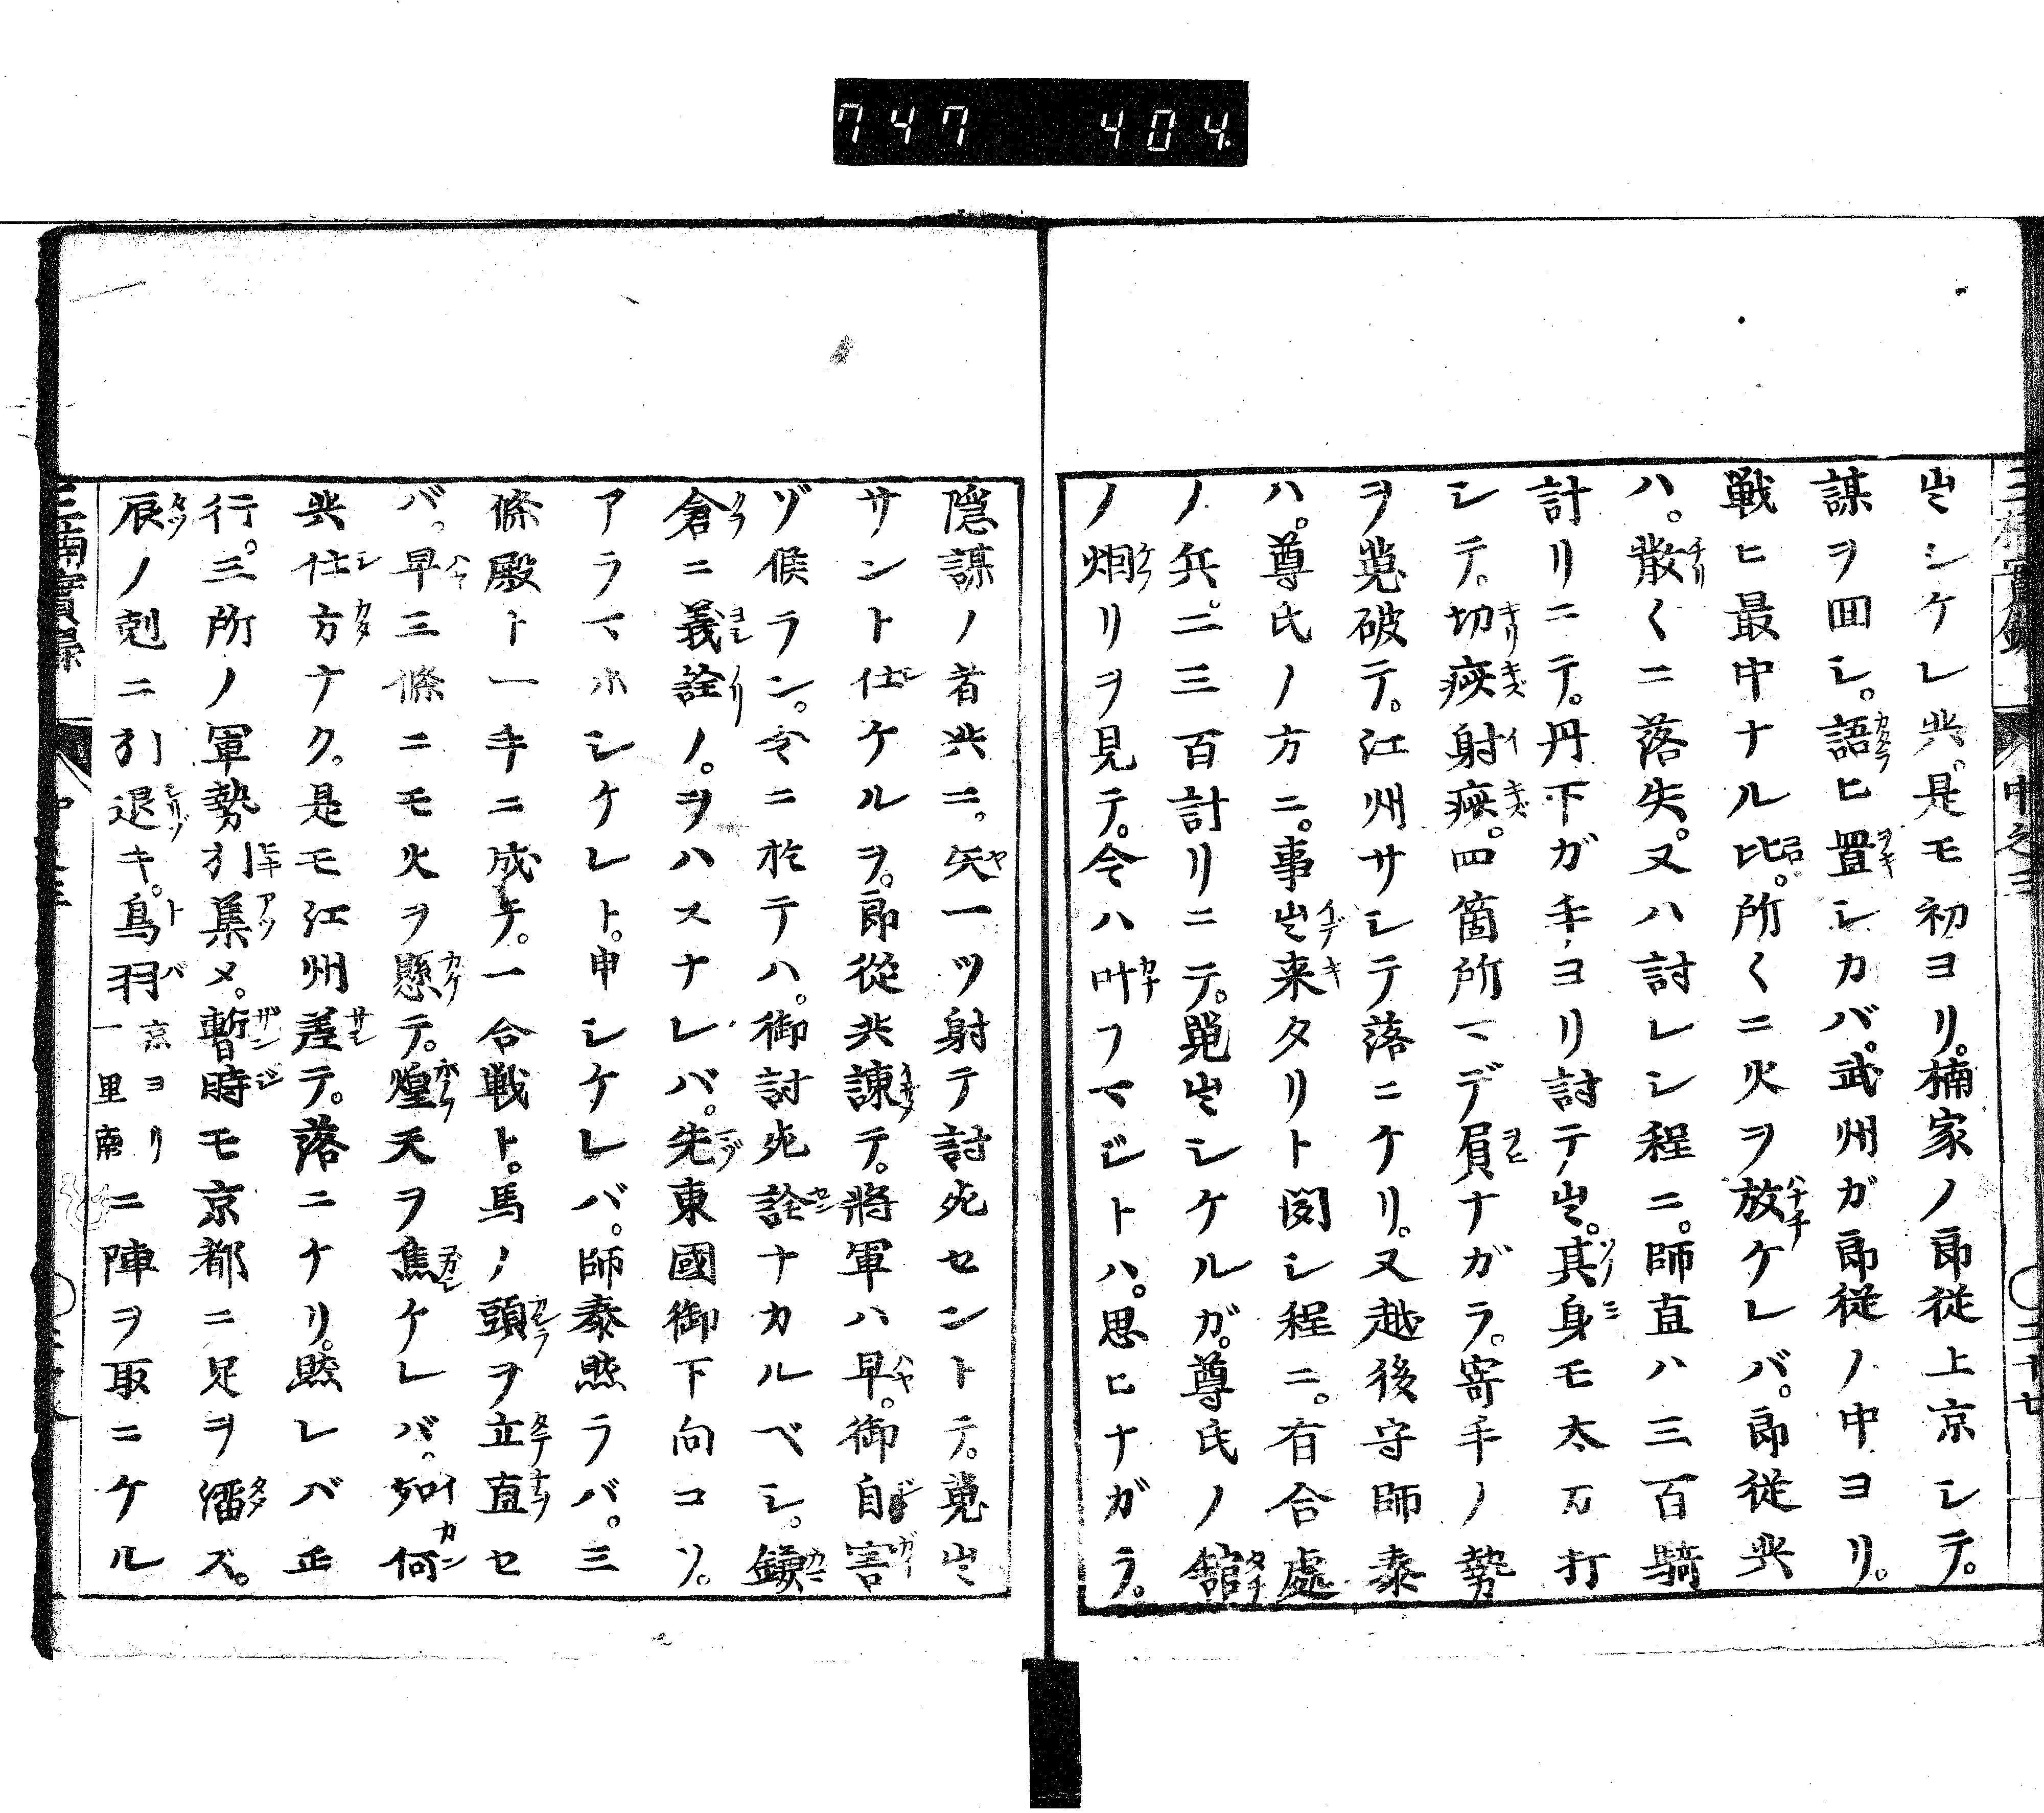 747 404
出シケレ共。是モ初ヨリ。楠家ノ郎従上京シテ。
謀ヲ回シ。語ヒ置シカバ。武州ガ郎従ノ中ヨリ。
戦ヒ最中ナル比。所〱ニ火ヲ放ケレバ。郎従共
ハ。散〱ニ落失。又ハ討レシ程ニ。師直ハ三百騎
計リニテ。丹下ガ手ヨリ討テ出。其身モ太刀打
シテ。切疵射疵。四箇所マデ屓ナガラ。寄手ノ勢
ヲ蒐破テ。江州サシテ落ニケリ。又越後守師泰
ハ。尊氏ノ方ニ。事出来タリト聞シ程ニ。有合處
ノ兵。二三百計リニテ。蒐出シケルガ。尊氏ノ舘
ノ烟リヲ見テ。今ハ叶フマジトハ。思ヒナガラ。
隠謀ノ者共ニ。矢一ツ射テ討死セントテ。蒐出
サント仕ケルヲ。郎従共諫テ。将軍ハ早。御自害
ヅ候ラン。今ニ於テハ。御討死詮ナカルベシ。鎌
倉ニ義詮ノ。ヲハスナレバ。先東國御下向コソ。
アラマホシケレト。申シケレバ。師泰然ラバ。三
條殿ト一手ニ成テ。一合戦ト。馬ノ頭ヲ立直セ
バ。早三條ニモ火ヲ懸テ。煌天ヲ焦ケレバ。如何
共仕方ナク。是モ江州差テ。落ニケリ。然レバ正
行。三所ノ軍勢引集メ。暫時モ京都ニ足ヲ溜ズ。
辰ノ剋ニ引退キ。鳥羽京ヨリ一里南ニ陣ヲ取ニケル